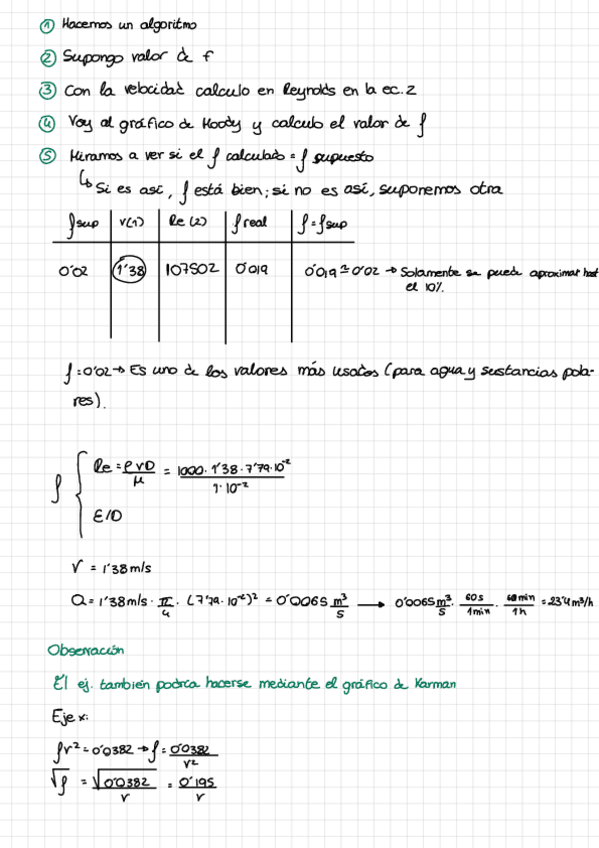 ① Hacemos un algoritmo
② Supongo valor de f
③ Con la velocidad calculo en Reynolds en la ec. 2
④ Voy al gráfico de Moody y calculo el valor de f
⑤ Miramos a ver si el f calculado = f supuesto
↳ Si es así, f está bien; si no es así, suponemos otra
f sup | v(1) | Re (2) | f real | f = f sup
0'02 | 1'38 | 107502 | 0'019 | 0'019 ≃ 0'02 → Solamente se puede aproximar hast
el 10%.
f = 0'02 → Es uno de los valores más usados (para agua y sustancias pola-
res).
f { Re = ρvD/μ = 1000 · 1'38 · 7'79 · 10⁻²/1 · 10⁻²
ε/D
V = 1'38 m/s
Q = 1'38 m/s · π/4 · (7'79 · 10⁻²)² = 0'0065 m³/s → 0'0065 m³/s · 60 s/1 min · 60 min/1 h = 23'4 m³/h
Observación
El ej. también podría hacerse mediante el gráfico de Karman
Eje x:
fv² = 0'0382 → f = 0'0382/v²
√f = √0'0382/v = 0'195/v